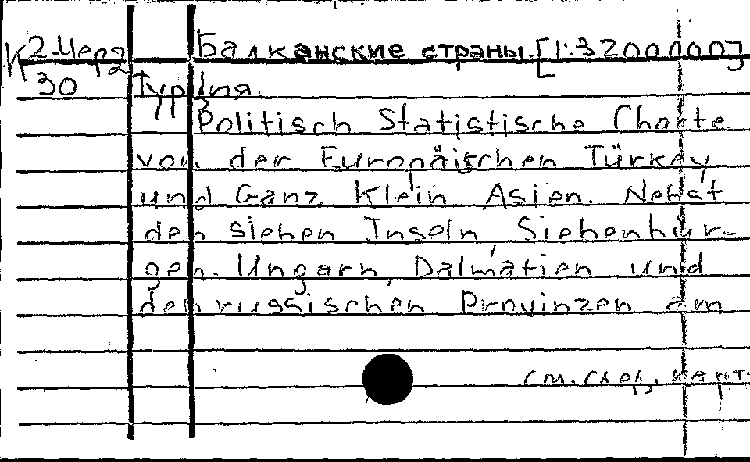 К 2 Мерз Балканские страны. [1:3200000]
30 Турция.
Politisch Statistische Charte
von der Europäischen Türkey
und Ganz Klein Asien. Nebst
den sieben Inseln, Siebenbür-
gen. Ungarn, Dalmatien und
den russischen Provinzen am
см. след. карт.